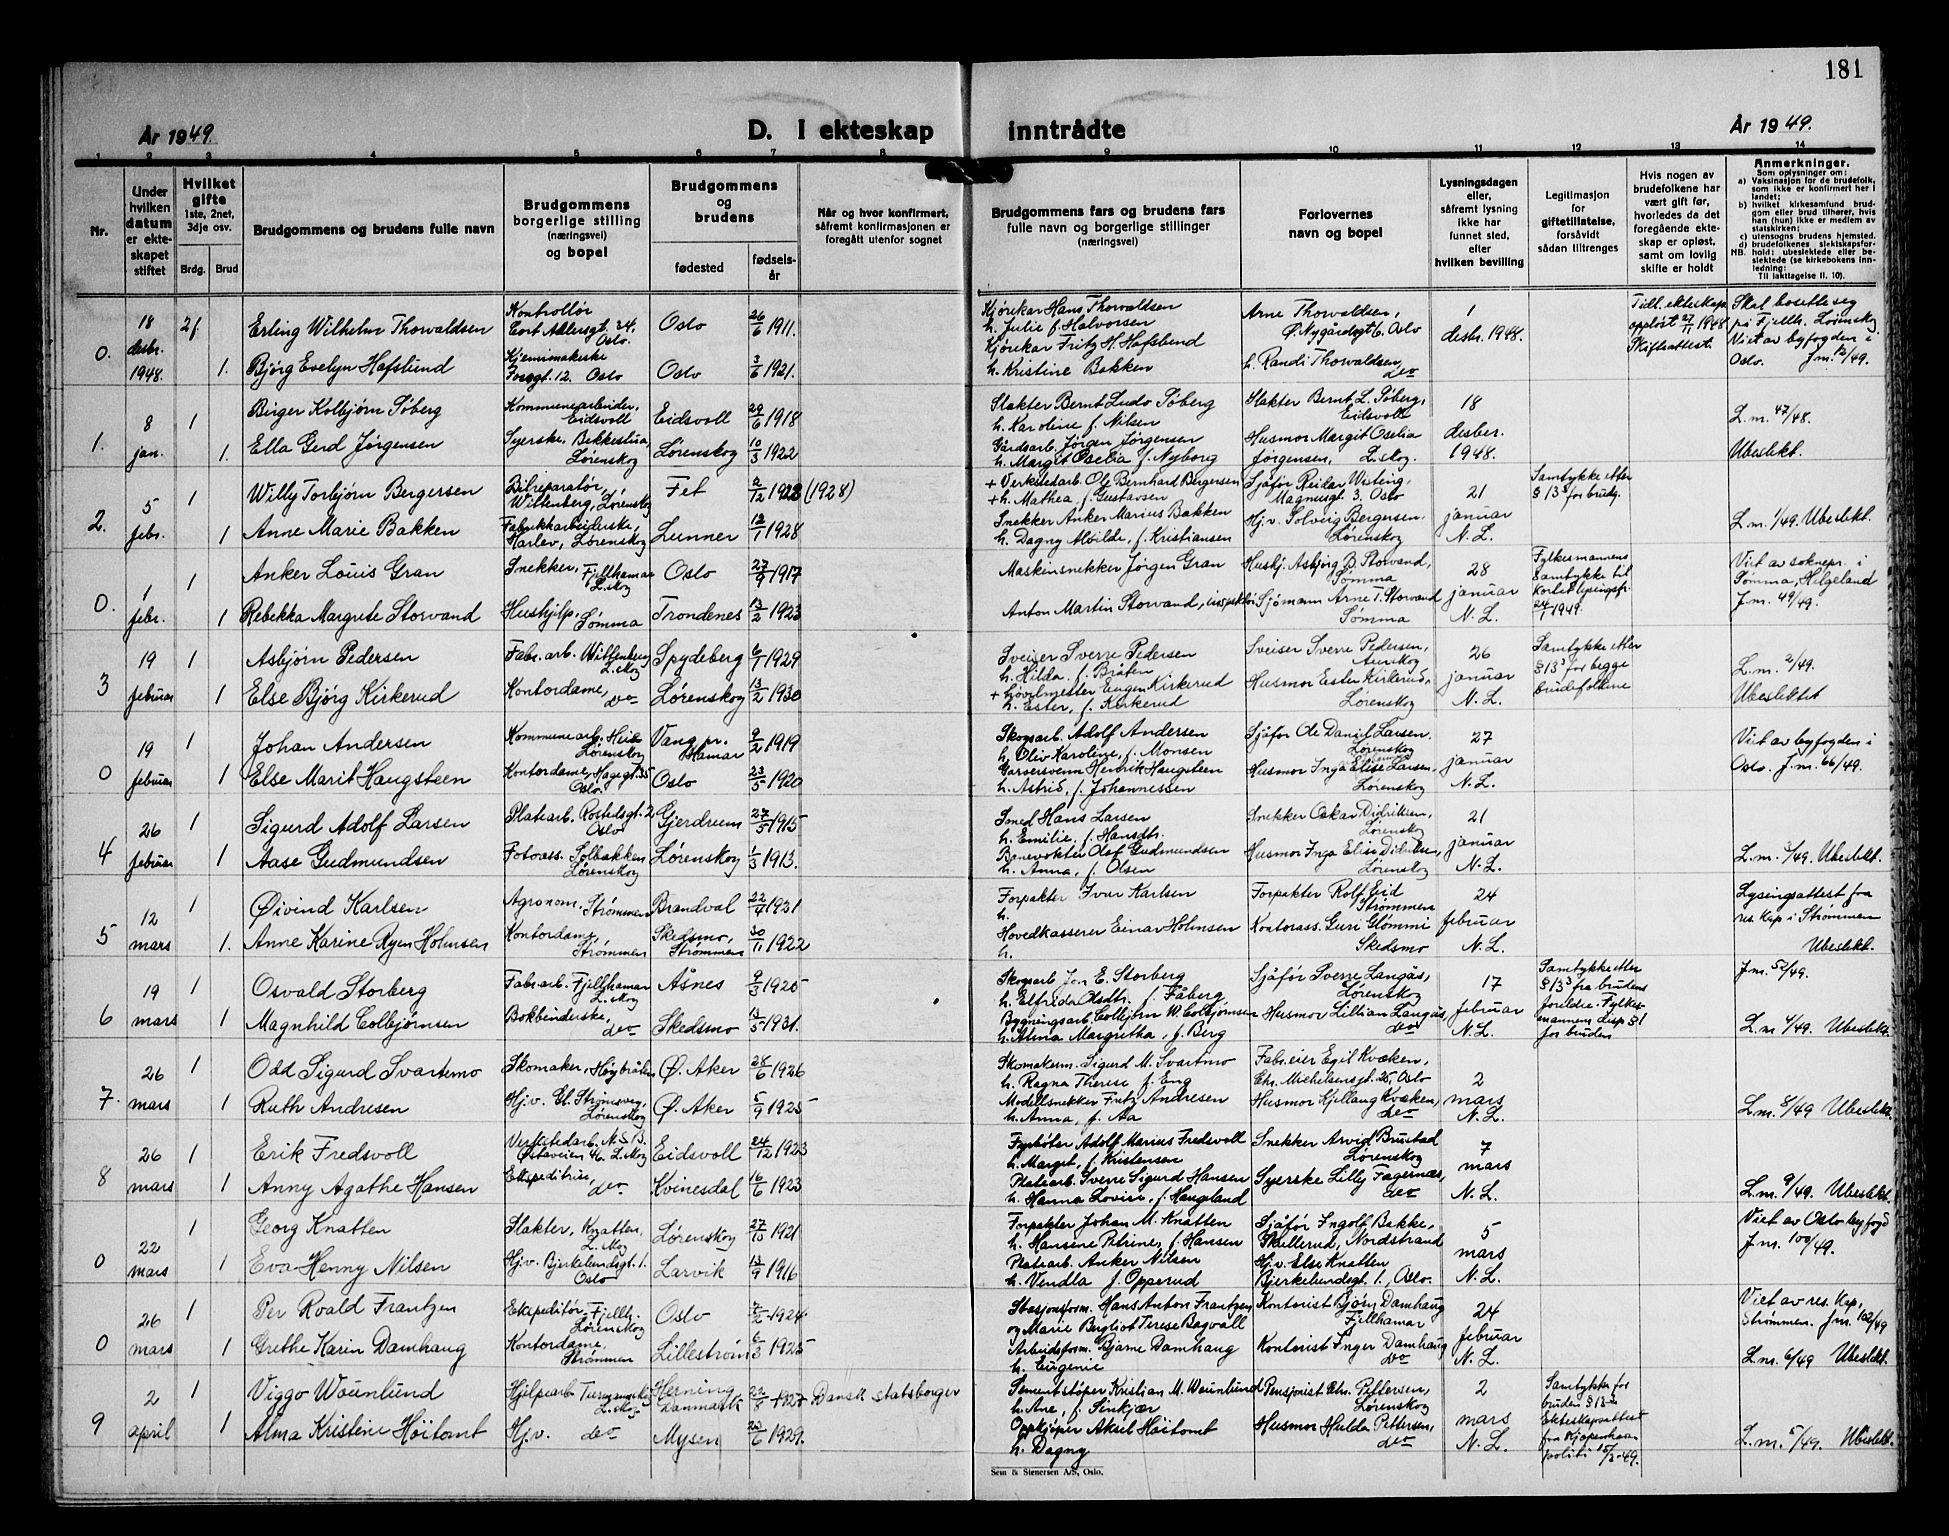 181
År 1949.
D. I ekteskap inntrådte
År 1949.
1 2 3 4 5 6 7 8 9 10 11 12 13 14
Nr.
Under hvilken datum er ekteskapet stiftet
Hvilket gifte
1ste, 2net, 3dje osv.
Brdg. Brud
Brudgommens og brudens fulle navn
Brudgommens borgerlige stilling (næringsvei) og bopel
Brudgommens og brudens
fødested
fødselsår
Når og hvor konfirmert, såfremt konfirmasjonen er foregått utenfor sognet
Brudgommens fars og brudens fars fulle navn og borgerlige stillinger (næringsvei)
Forlovernes navn og bopel
Lysningsdagen eller, såfremt lysning ikke har funnet sted, efter hvilken bevilling
Legitimasjon for giftetillatelse, forsåvidt sådan tiltrenges
Hvis nogen av brudefolkene har vært gift før, hvorledes da det foregående ekteskap er opløst, samt om lovlig skifte er holdt
Anmerkninger.
Som oplysninger om:
a) Vaksinasjon for de brudefolk, som ikke er konfirmert her i landet;
b) hvilket kirkesamfund brudgom eller brud tilhører, hvis han (hun) ikke er medlem av statskirken;
c) utensogns brudens hjemsted.
d) brudefolkenes slektskapsforhold: ubeslektede eller beslektede (se kirkebokens innledning:
NB. Til iakttagelse II. 10).
0. 18 desbr. 1948. 2f Erling Wilhelm Thorvaldsen Kontrollør Cort Adlersgt. 24. Oslo. Oslo 26/6 1911.
1. Bjørg Evelyn Hafslund Fossgt. 12. Oslo Oslo 3/6 1921.
Kjørekar Hans Thorvaldsen
h. Julie f. Halvorsen
Kjørekar Fritz H. Hafslund
h. Kristine Bakken
Arne Thorvaldsen, Ø. Nygårdsgt 6. Oslo
h. Randi Thorvaldsen, do
1 desbr. 1948.
Tidl. ekteskap opløst 27/1 1948 Skifteattest.
Skal bosette seg på Fjellh. Lørenskog Viet av byfogden i Oslo. J.m. 12/49.
1. 8 jan. 1 Birger Kolbjørn Søberg Kommunearbeider, Eidsvoll Eidsvoll 29/6 1918
1. Ella Gerd Jørgensen Syerske, Bekkestua, Lørenskog Lørenskog 10/3 1922
Slakter Bernt Ludv. Søberg
h. Karoline f. Nilsen
Gårdsarb. Jørgen Jørgensen
h. Margit Oselia f. Nyborg
Slakter Bernt L. Søberg, Eidsvoll
Husmor Margit Oselia Jørgensen, L.skog.
18 desber. 1948.
L.m. 47/48.
Ubeslekt.
2. 5 febr. 1 Willy Torbjørn Bergersen Bilreparatør, Wittenberg, Lørenskog Fet 2/12 1928 (1928)
1 Anne Marie Bakken Fabrikkarbeiderske, Harlev, Lørenskog Lunner 12/1 1928
+ Verkstedarb. Ole Bernhard Bergersen
+ h. Mathea, f. Gustavsen
Snekker Anker Marius Bakken
h. Dagny Alvilde, f. Kristiansen
Sjåfør Reidar Wisting, Magnusgt. 3. Oslo
Hj.v. Solveig Bergersen, Lørenskog
21 januar N.L.
Samtykke etter § 13 for brudg.
L.m. 1/49. Ubeslekt.
0. 1 febr. 1 Anker Louis Gran Snekker, Fjellhamar L.skog Oslo 27/9 1917
1 Rebekka Margrete Storvand Hushjelp, Sømma Trondenes 13/2 1923
Maskinsnekker Jørgen Gran
Anton Martin Storvand, inspektør
Hushj. Asbjørg B. Storvand, Sømma
Sjømann Arne T. Storvand Sømma
28 januar N.L.
Fylkesmannens samtykke til kortet lysingsfr. 24/1 1949.
Viet av soknepr. i Sømma, Helgeland J.m. 49/49.
3 19 februar 1 Asbjørn Pedersen Fabr.arb. Wittenberg L.skog Spydeberg 6/1 1929
1 Else Bjørg Kirkerud Kontordame, do Lørenskog 13/2 1930
Sveiser Sverre Pedersen
h. Hilda, f. Bråten
+ Gjøvelmester Eugen Kirkerud
h. Ester, f. Kirkerud
Sveiser Sverre Pedersen, Aurskog
Husmor Ester Kirkerud, Lørenskog
26 januar N.L.
Samtykke etter § 13 for begge brudefolkene
L.m. 2/49.
Ubeslektet
0 19 februar 1 Johan Andersen Kommunearb. Lørenskog Vang pr. Hamar 9/2 1919
1 Else Marit Haugsteen Kontordame, Hagegt. 35 Oslo. Oslo 23/5 1920
Skogsarb. Adolf Andersen
h. Oliv Karoline, f. Monsen
Garversvenn Henrik Haugsteen
h. Astrid, f. Johannessen
Sjåfør Ole Daniel Larsen, Lørenskog
Husmor Inga Elise Larsen, Lørenskog
27 januar N.L.
Viet av byfogden i Oslo. J.m. 66/49.
4 26 februar 1 Sigurd Adolf Larsen Platearb. Rostedsgt. 2 Oslo Gjerdrum 27/5 1915
1 Aase Gudmundsen Fotoass. Solbakken Lørenskog Lørenskog 1/3 1913.
Smed Hans Larsen
h. Emilie, f. Hansdtr.
Banevokter Olaf Gudmundsen
h. Anna, f. Olsen
Snekker Oskar Didriksen, Lørenskog
Husmor Inga Elise Didriksen, Lørenskog
21 januar N.L.
L.m. 3/49. Ubeslekt.
5 12 mars 1 Øivind Karlsen Agronom. Strømmen Brandval 22/4 1931
1. Anne Karine Ryen Holmsen Kontordame, Strømmen Skedsmo, Strømmen 30/11 1922
Forpakter Ivar Karlsen
h.
Hovedkasserer Einar Holmsen
h.
Forpakter Rolf Eid Strømmen
Kontorass. Guri Glømmi Skedsmo
24 februar N.L.
Lysingsattest fra res. kap i Strømmen
Ubeslekt.
6 19 mars Osvald Storberg Fabr.arb. Fjellhamar L.skog Åsnes 9/3 1925
1 Magnhild Colbjørnsen Bokbinderske, do Skedsmo 13/5 1931.
Skogsarb Jon E. Storberg
h. Elfrida Olsdtr. f. Fåberg
Bygningsarb. Colbjørn W. Colbjørnsen
h. Alma Margretha, f. Berg
Sjåfør Sverre Langås, Lørenskog
Husmor Lillian Langås, do
17 februar N.L.
Samtykke etter § 13 fra brudens foreldre. Fylkesmannens disp § 1 for bruden
J.m. 52/49.
L.m. 4/49. Ubeslekt.
7. 26 mars 1 Odd Sigurd Svartemo Skomaker, Høybråten Ø. Aker 28/6 1926
1 Ruth Andresen Hj.v. Gl. Strømsveg, Lørenskog Ø. Aker 5/9 1925
Skomakerm. Sigurd M. Svartmo
h. Ragna Therese f. Eng
Modellsnekker Fritz Andresen
h. Anna, f. Aa
Fabr.eier Egil Kvæken, Chr. Michelsensgt. 25, Oslo
Husmor Kjellaug Kvæken, do
2 mars N.L.
L.m. 8/49 Ubeslekt.
8 26 mars 1 Erik Fredsvoll Verkstedarb. N.S.B. Østaveien 46. L.skog Eidsvoll 24/12 1923
1 Anny Agathe Hansen Ekspeditrise, do Kvinesdal 16/6 1923
Fyrbøter Adolf Marius Fredsvoll
h. Margit, f. Kristensen
Platearb. Sverre Sigurd Hansen
h. Hanna Lovise, f. Haugland
Snekker Arvid Brustad Lørenskog
Syerske Lilly Fagernæs, do
7 mars N.L.
L.m. 9/49 Ubeslekt.
0 22 mars 1 Georg Knatten Slakter, Knatten, L.skog Lørenskog 27/10 1921
1 Eva Henny Nilsen Hj.v. Bjerkelundsgt. 1. Oslo Larvik 13/9 1916
Forpakter Johan M. Knatten
h. Hansine Petrine, f. Hansen
Platearb. Anker Nilsen
h. Vendla f. Opperud
Sjåfør Ingolf Bakke, Skullerud, Nordstrand
Hj.v. Else Knatten Bjerkelundsgt 1, Oslo.
5 mars N.L.
Viet av Oslo byfogd J.m. 100/49.
0 26 mars 1 Per Roald Frantzen Ekspeditør, Fjellh. Lørenskog Oslo 2/2 1924
1 Grethe Karin Damhaug Kontordame, Strømmen Lillestrøm 6/3 1925
Stasjonsform. Hans Anton Frantzen
og Marie Bergliot Terese Bagvall
Arbeidsform. Bjarne Damhaug
h. Eugenie
Kontorist Bjørn Damhaug Fjellhamar
Kontorist Inger Damhaug do
24 februar N.L.
Viet av res. kap, Strømmen. J.m. 102/49
L.m. 6/49 Ubeslekt.
9 2 april 1 Viggo Wounlund Hjelpearb. L.skog Herning Danmark 22/5 1927 Dansk statsborger
1 Alma Kristine Høitomt Hj.v. do Mysen 23/6 1929.
Sementstøper Kristian M. Wounlund
h. Ane, f. Sinkjær
Oppkjøper Aksel Høitomt
h. Dagny
Pensjonist Chr. Pettersen, Lørenskog
Husmor Hulda Pettersen, do
2 mars N.L.
Samtykke for bruden § 13 Ekteskapsattest fra Kjøpenhavn politi 15/3-49.
L.m. 5/49. Ubeslekt.
Sem & Stenersen A/S, Oslo.